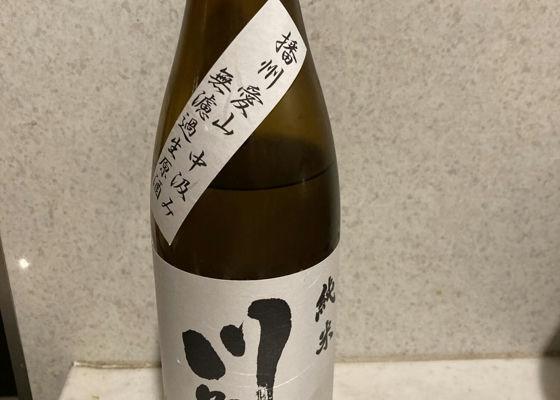 播州愛山 中汲み
無濾過生原酒
純米
川